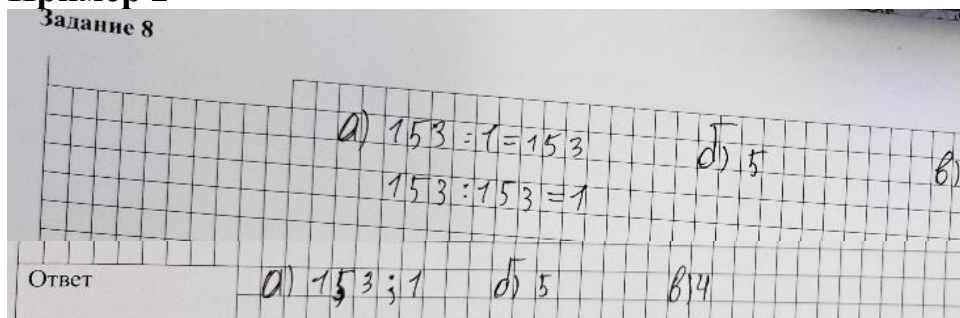 Задание 8
а) 153 : 1 = 153 б) 5 в)
153 : 153 = 1
Ответ а) 153; 1 б) 5 в) 4